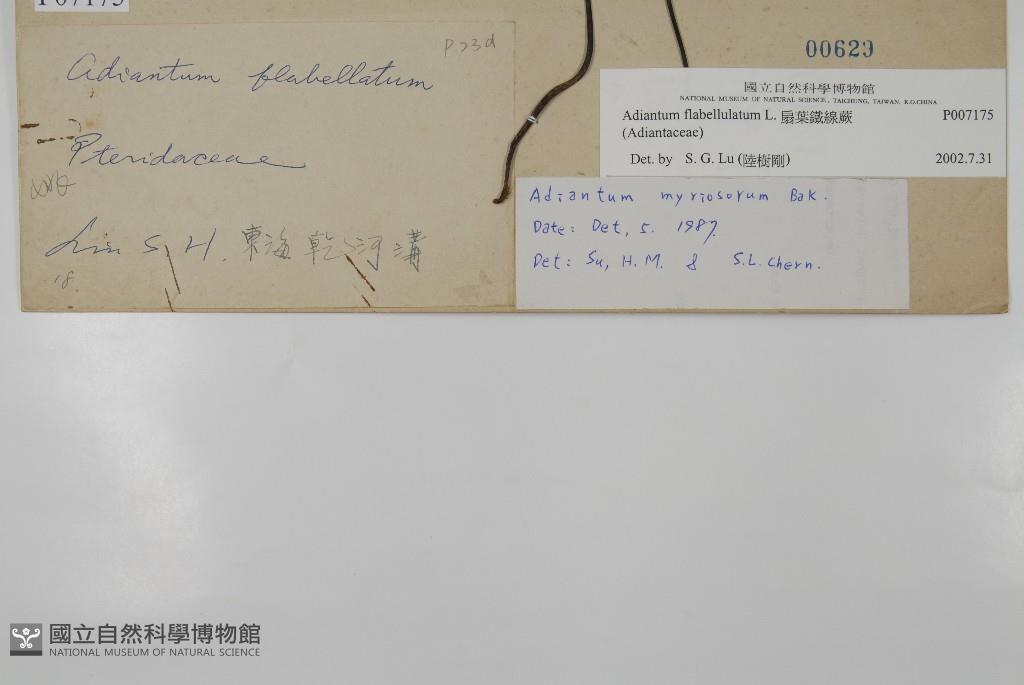 P07175
P23d
Adiantum flabellatum
Pteridaceae
Lin S. H. 東海乾河溝
18.
00629
國立自然科學博物館
NATIONAL MUSEUM OF NATURAL SCIENCE, TAICHUNG, TAIWAN, R.O.CHINA
Adiantum flabellulatum L. 扇葉鐵線蕨 P007175
(Adiantaceae)
Det. by S. G. Lu (陸樹剛) 2002.7.31
Adiantum myriosorum Bak.
Date: Det, 5. 1987.
Det: Su, H. M. & S. L. Chern.
國立自然科學博物館
NATIONAL MUSEUM OF NATURAL SCIENCE